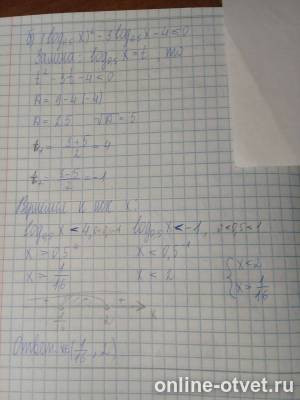 б) (log₀,₅ x)² - 3log₀,₅ x - 4 ≤ 0
Замена: log₀,₅ x = t
t² - 3t - 4 ≤ 0
D = 9 - 4(-4)
D = 25 √D = 5
t₁ = (3+5)/2 = 4
t₂ = (3-5)/2 = -1
Вернемся к x:
log₀,₅ x < 4, log₀,₅ x < -1, 0<0,5<1
x > 0,5⁴ x < 0,5⁻¹
x > 1/16 x < 2
{ x < 2
{ x > 1/16
+ - +
1/16 2 x
Ответ: x∈(1/16, 2)
online-otvet.ru